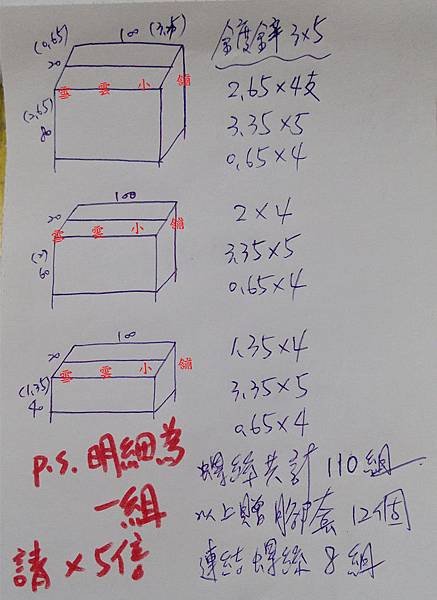 (0.65) 100 (3.35) 鍍鋅3×5
20
雲雲小舖
(2.65)
80
2.65×4支
3.35×5
0.65×4
100
20
雲雲小舖
(2)
60
2×4
3.35×5
0.65×4
100
20
雲雲小舖
(1.35)
40
1.35×4
3.35×5
0.65×4
P.S. 明細為
一組
請×5倍
螺絲共計110組
以上贈腳套12個
連結螺絲8組